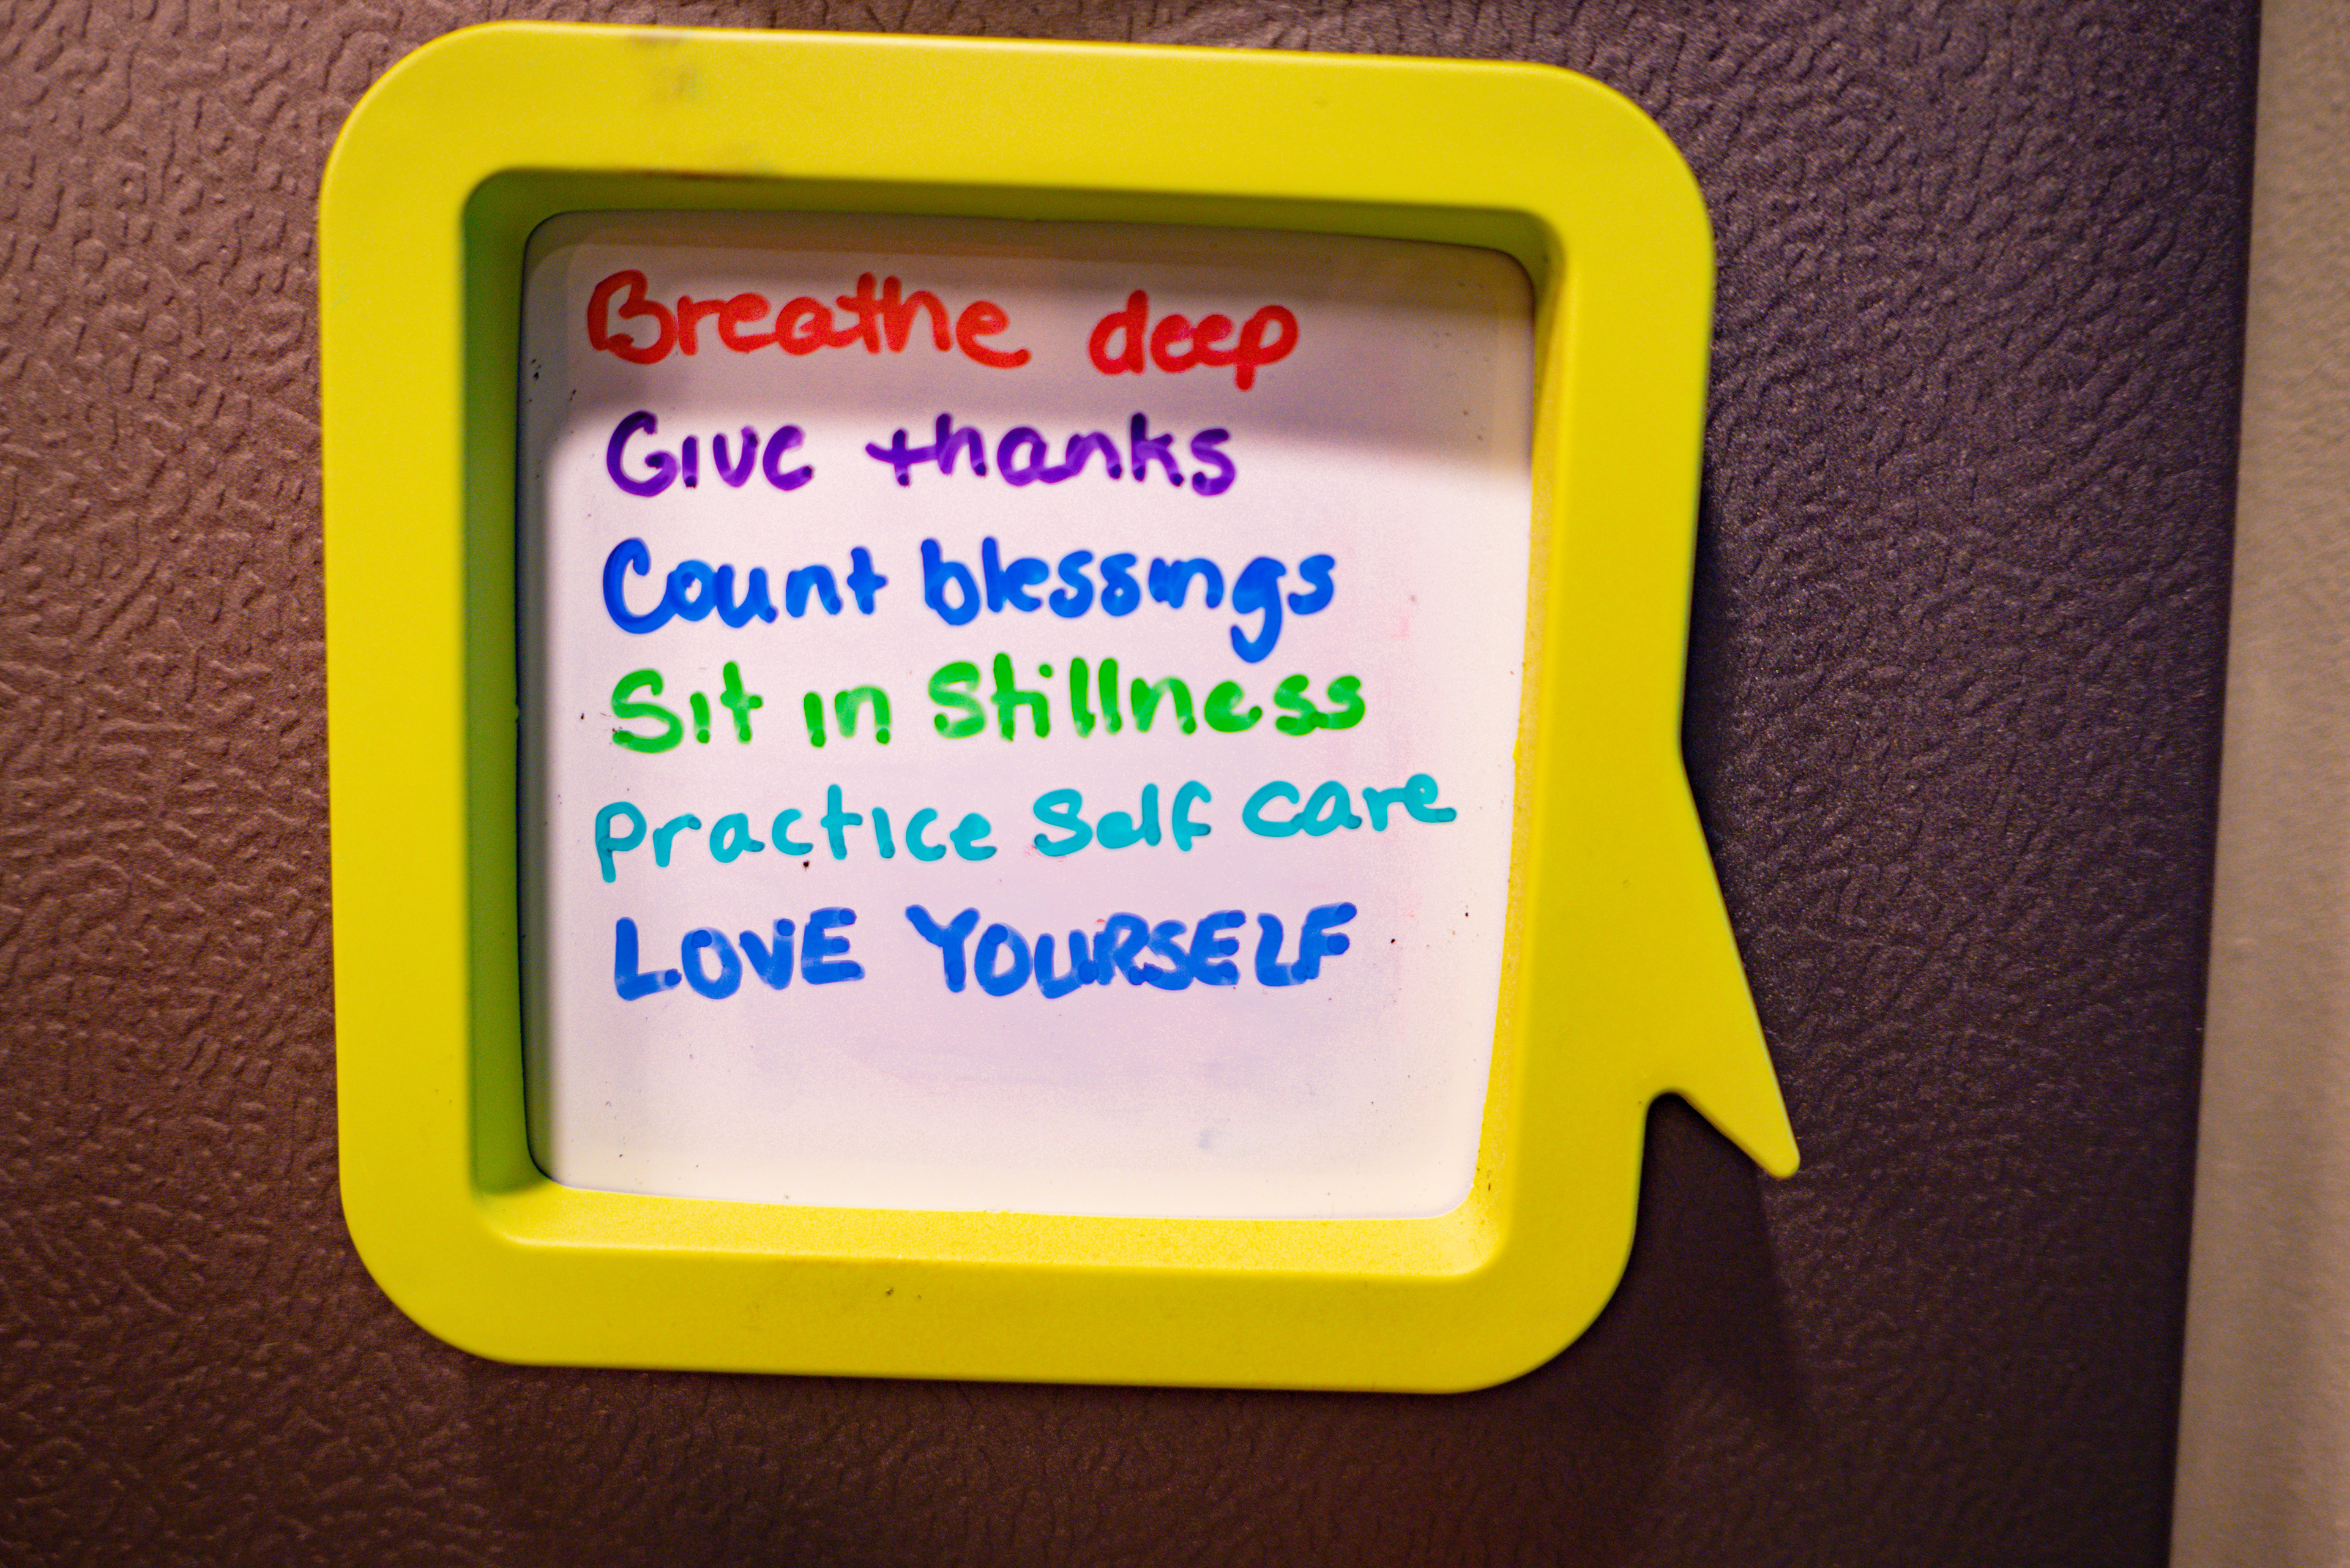 Breathe deep
Give thanks
Count blessings
Sit in Stillness
Practice Self care
LOVE YOURSELF